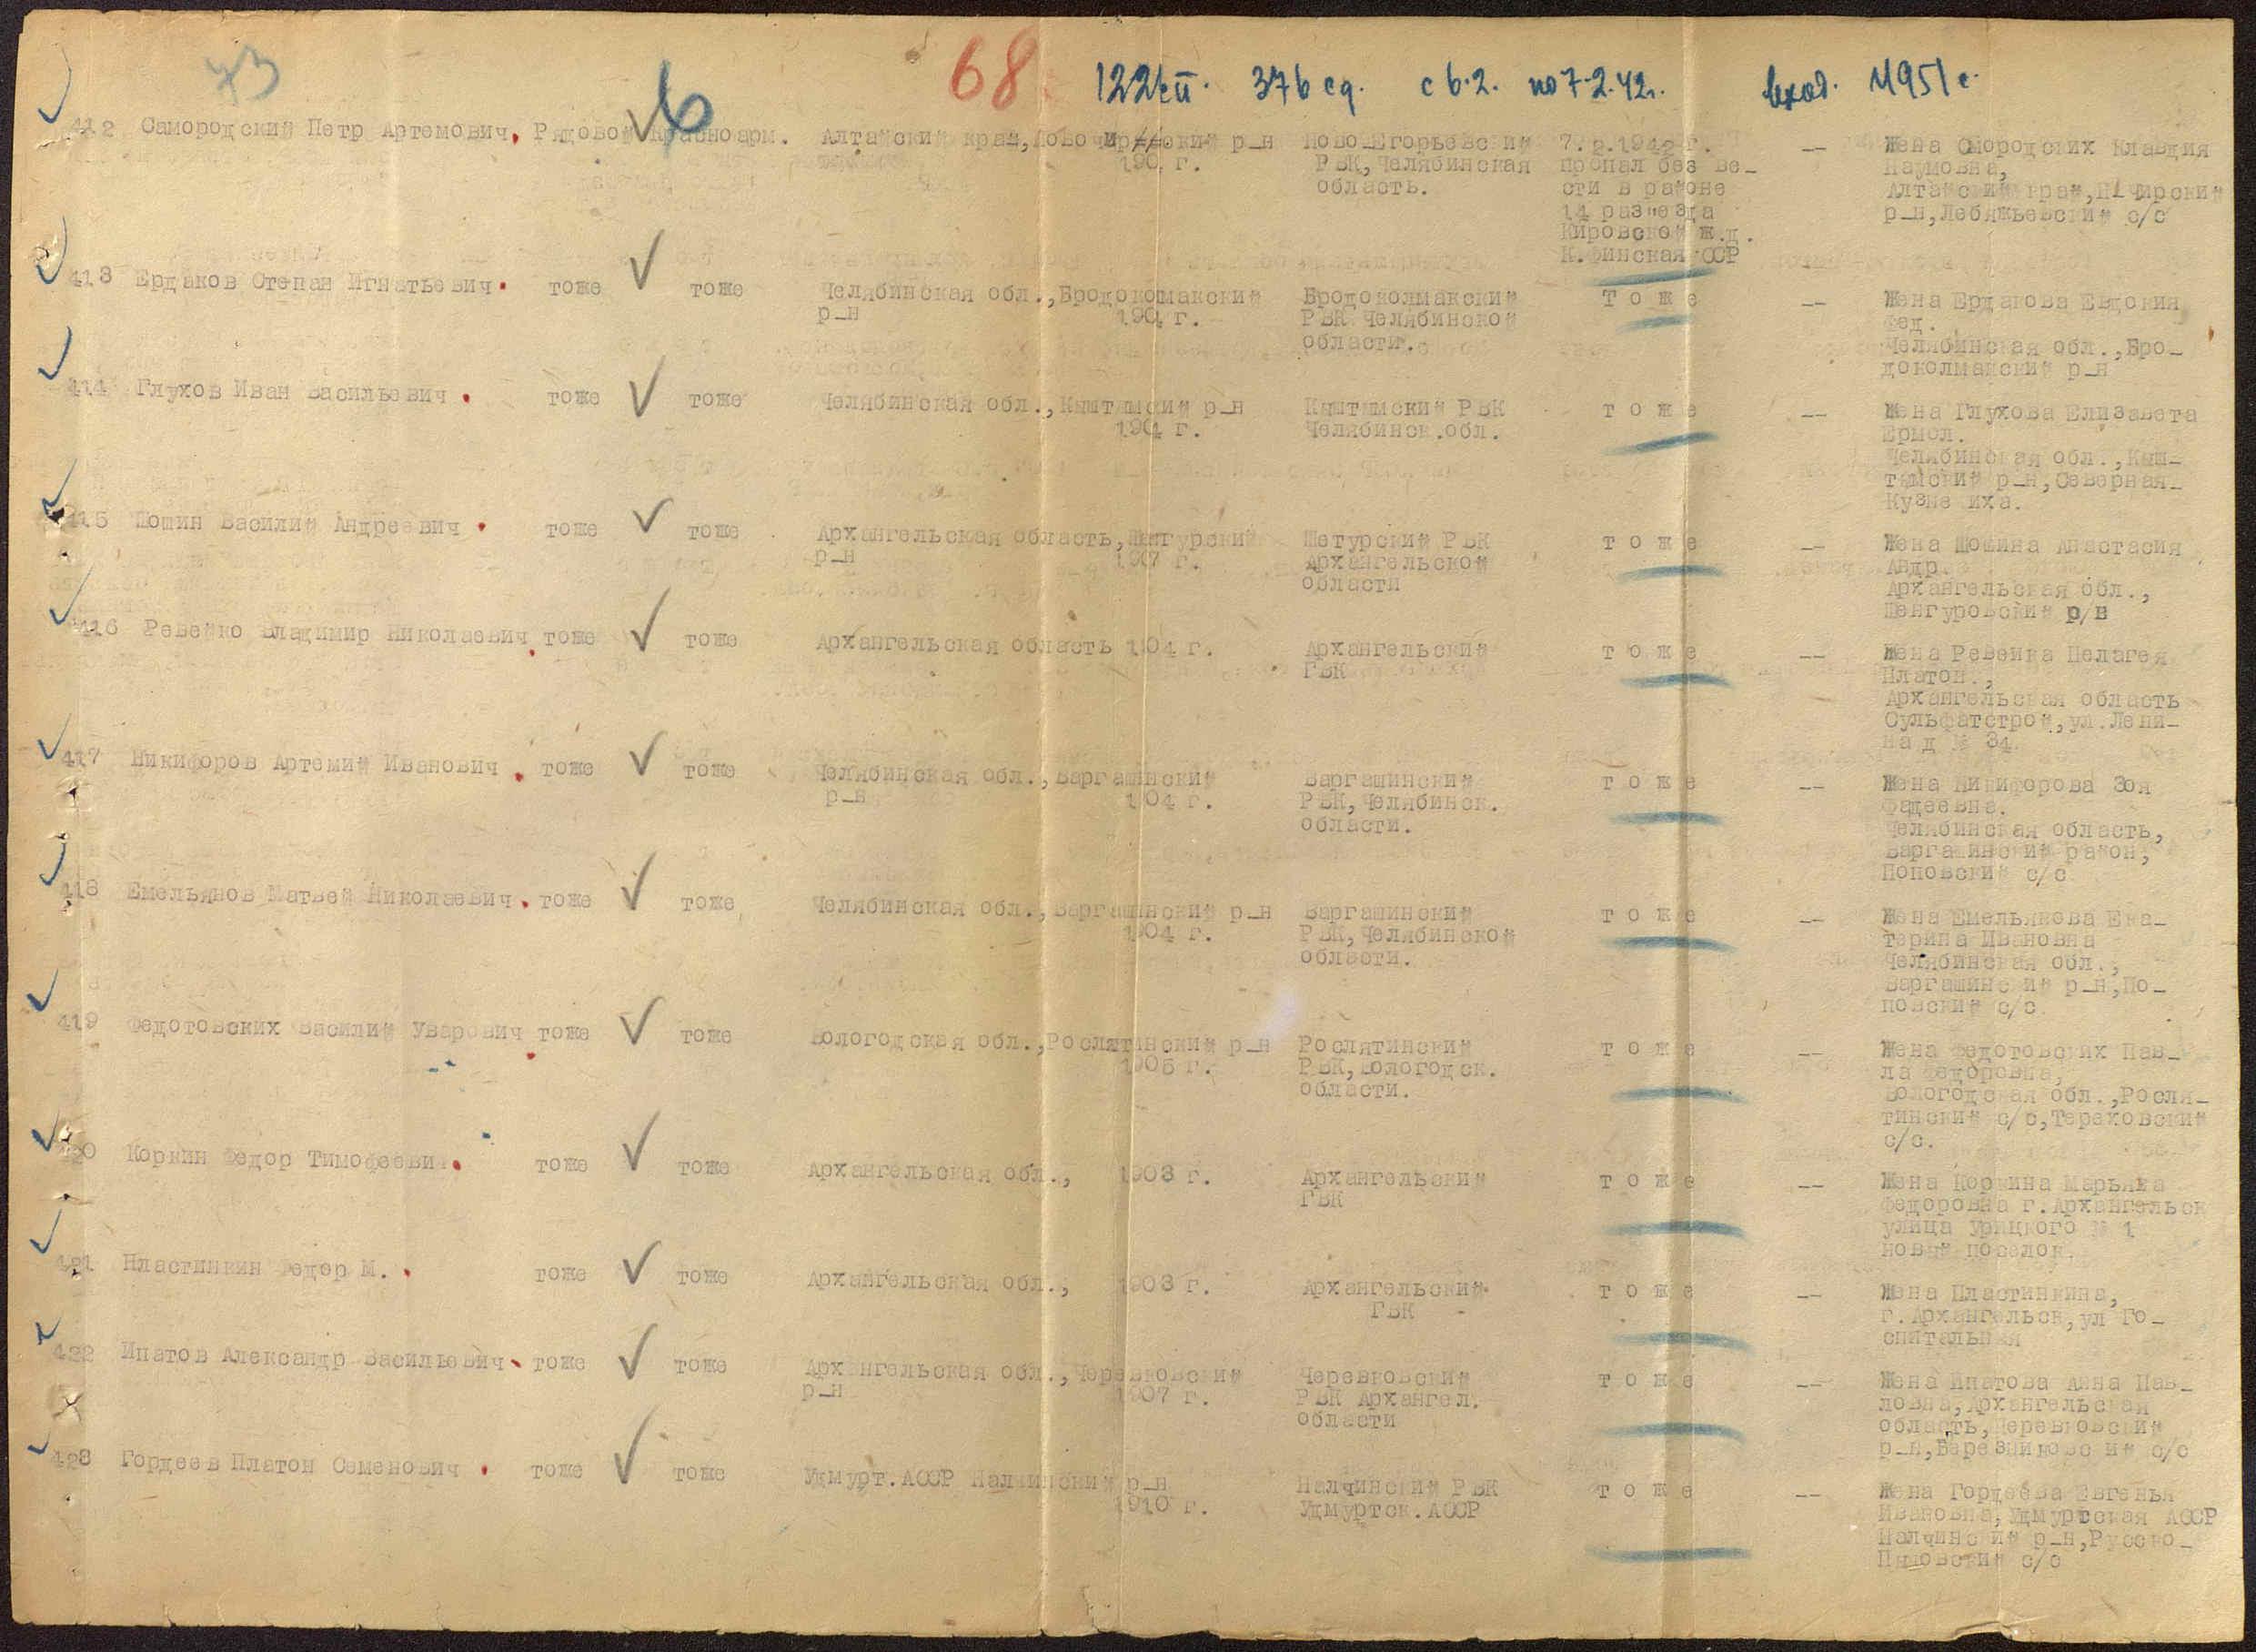 73
6
68
122 сп. 376 сд. с 6.2. по 7.2.42г. вход. 11951 с.
412 Самородский Петр Артемович, Рядовой Красноарм. Алтайский край, р-н Ново-Егорьевский 7.2.1942 г. -- Жена Смородских Клавдия
190 г. РВК, Челябинская пропал без ве- Наумовна,
область. сти в районе Алтайский край,
14 раз"езда р-н, Лебяжьевский с/с
Кировской ж.д.
К.Финская ССР
413 Ердаков Степан Игнатьевич. тоже тоже Челябинская обл., Бродокомакский Бродоколмакский тоже -- Жена Ердакова Евдокия
р-н 1904 г. РВК Челябинской Фед.
области. Челябинская обл., Бро-
доколмакский р-н
414 Глухов Иван Васильевич. тоже тоже Челябинская обл., Кыштымский р-н Кыштымский РВК тоже -- Жена Глухова Елизавета
1904 г. Челябинск.обл. Ермол.
Челябинская обл., Кыш-
тымский р-н, Северная-
415 Шошин Василий Андреевич. тоже тоже Архангельская область, р-н 1907 г. Шегурский РВК тоже -- Жена Шошина Анастасия
Архангельской Андр.
области Архангельская обл.,
Шенгуровский р/в
416 Ревейко Владимир Николаевич. тоже тоже Архангельская область 1904 г. Архангельский тоже -- Жена Ревейка Пелагея
ГВК Платон.,
Архангельская область
Сульфатстрой, ул. Лени-
на д № 34.
417 Никифоров Артемий Иванович. тоже тоже Челябинская обл., Варгашинский Варгашинский тоже -- Жена Никифорова Зоя
р-н 1904 г. РВК, Челябинск. Фадеевна.
области. Челябинская область,
Варгашинский район,
Поповский с/с
418 Емельянов Матвей Николаевич. тоже тоже Челябинская обл., Варгашинский р-н Варгашинский тоже -- Жена Емельянова Ека-
1904 г. РВК, Челябинской терина Ивановна
области. Челябинская обл.,
Варгашинский р-н, По-
повский с/с
419 Федотовских Василий Уварович тоже тоже Вологодская обл., Рослятинский р-н Рослятинский тоже -- Жена Федотовских Пав-
1905 г. РВК, Вологодск. ла Федоровна,
области. Вологодская обл., Росля-
тинский с/с, Тереховский
с/с.
420 Коркин Федор Тимофеевич. тоже тоже Архангельская обл., 1903 г. Архангельский тоже -- Жена Коркина Марьяна
ГВК Федоровна г. Архангельск
улица Урицкого № 1
новый поселок.
421 Пластинкин Федор М. тоже тоже Архангельская обл., 1903 г. Архангельский тоже -- Жена Пластинкина,
ГВК г. Архангельск, ул Го-
спитальная
422 Ипатов Александр Васильевич. тоже тоже Архангельская обл., Черевковский Черевковский тоже -- Жена Ипатова Анна Пав-
р-н 1907 г. РВК Архангел. ловна, Архангельская
области область, Черевковский
р-н, Березниковский с/с
423 Гордеев Платон Семенович. тоже тоже Удмурт.АССР Налчинский р-н Налчинский РВК тоже -- Жена Гордеева Евгенья
1910 г. Удмуртск.АССР Ивановна, Удмуртская АССР
Налчинский р-н, Русско-
с/с